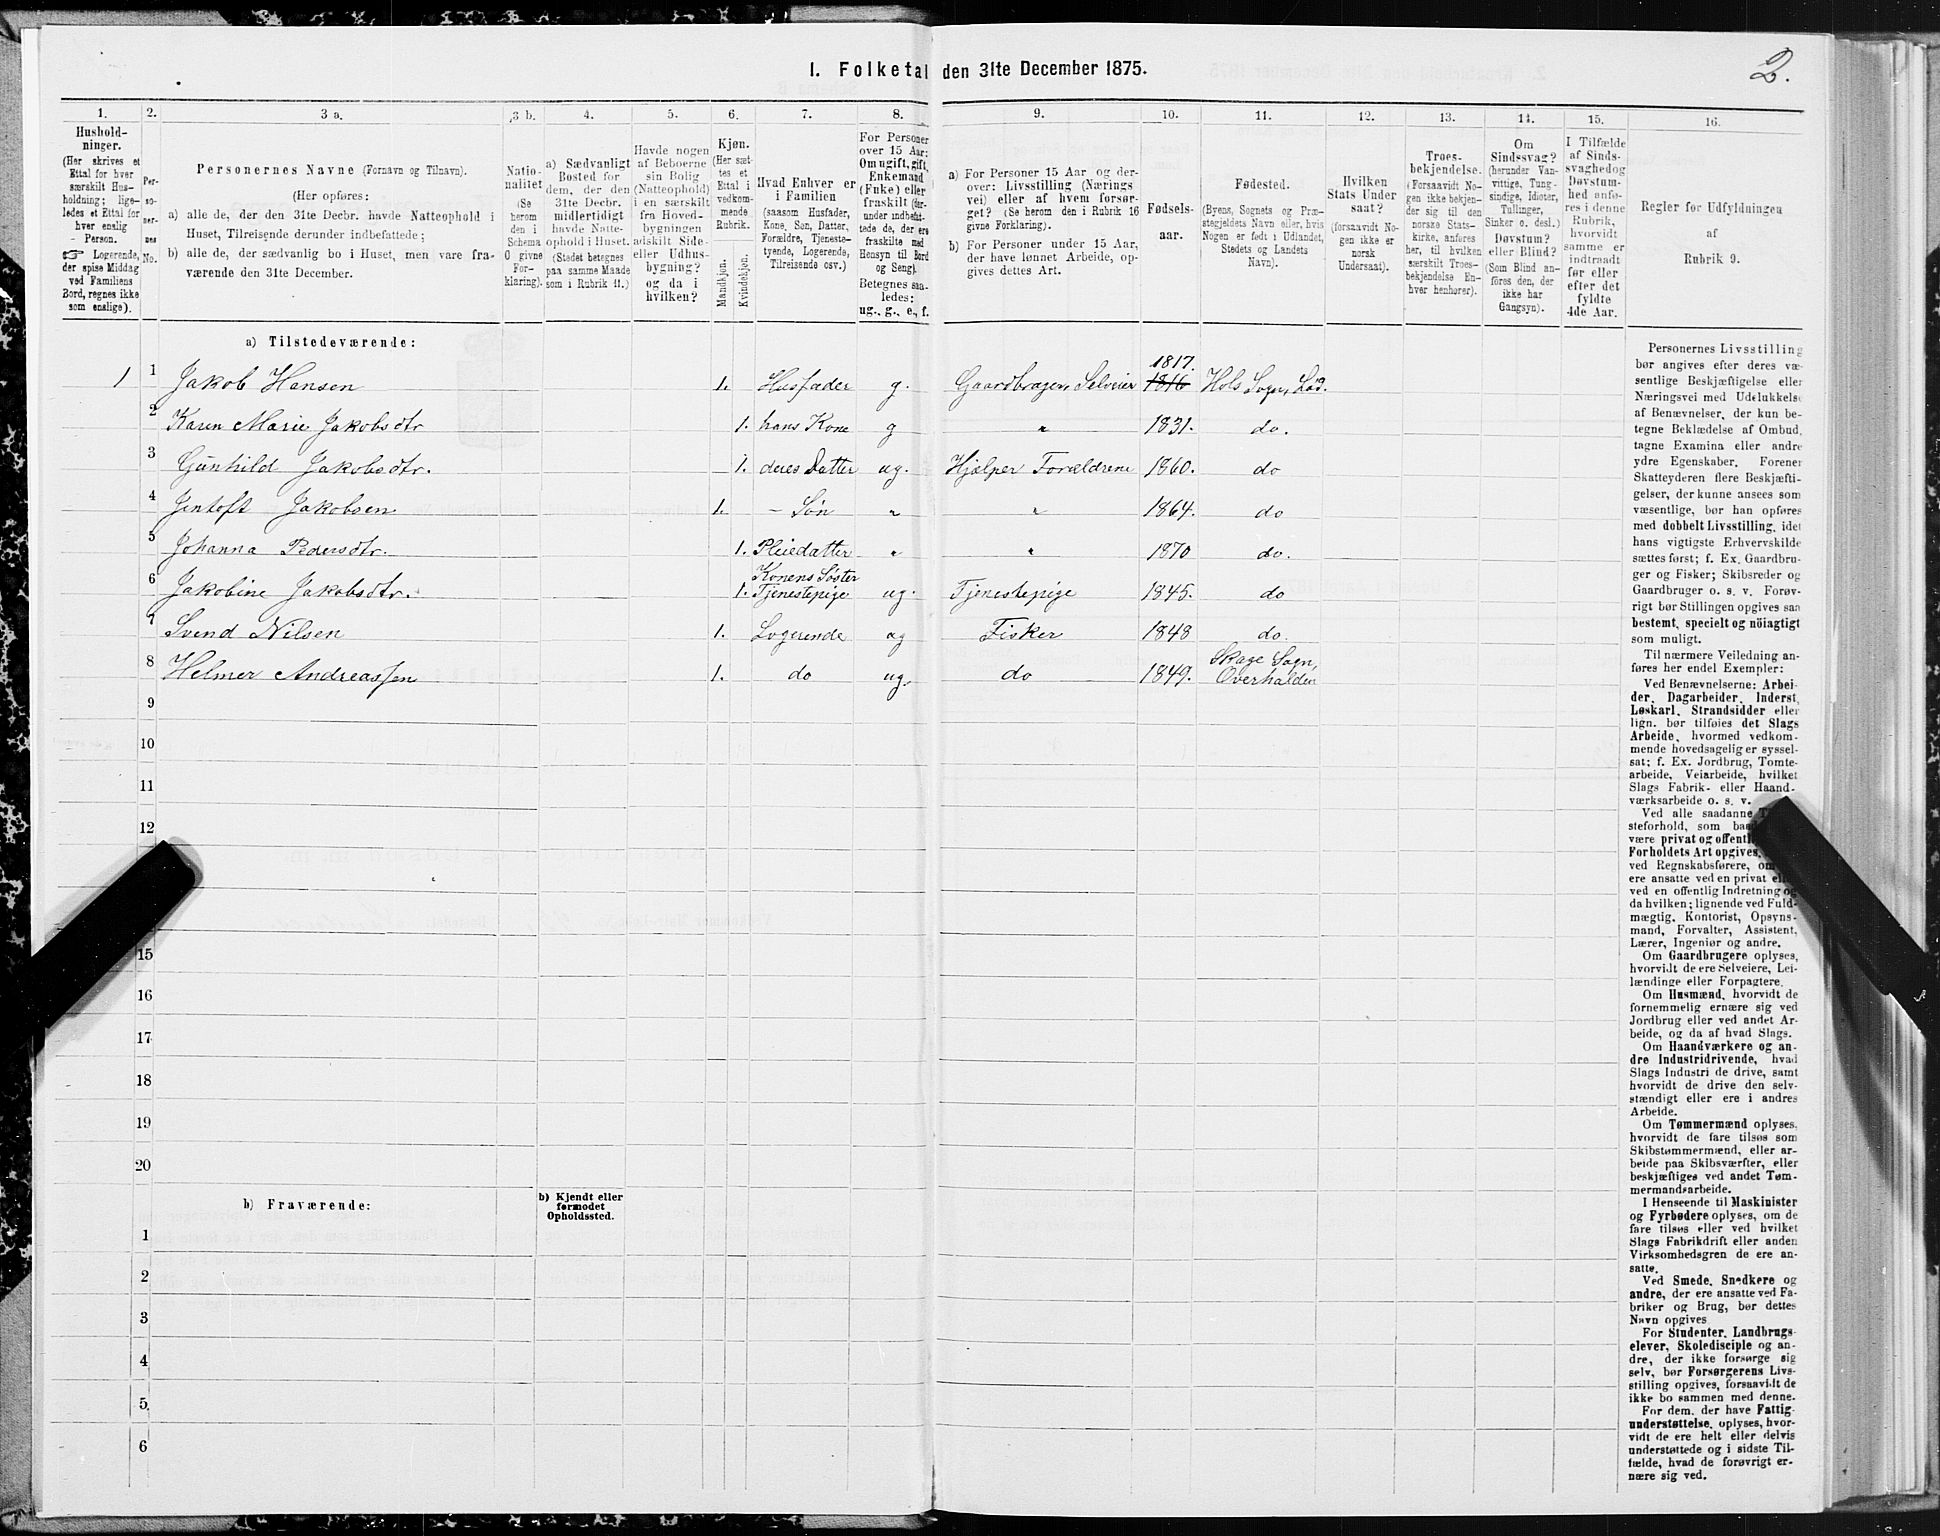 2.
I. Folketal den 31te December 1875.
1.
Hushold-
ninger.
(Her skrives et
Ettal for hver
særskilt Hus-
holdning; lige-
ledes et Ettal for
hver enslig
Person.
☞ Logerende,
der spise Middag
ved Familiens
Bord, regnes ikke
som enslige).
2.
Per-
so-
ner-
nes
No.
3 a.
Personernes Navne (Fornavn og Tilnavn).
(Her opføres:
a) alle de, der den 31te Decbr. havde Natteophold i
Huset, Tilreisende derunder indbefattede;
b) alle de, der sædvanlig bo i Huset, men vare fra-
værende den 31te December.
3 b.
Natio-
nalitet
(Se
herom
den i
Schema
O givne
For-
klaring).
4.
a) Sædvanligt
Bosted for
dem, der den
31te Decbr.
midlertidigt
havde Natte-
ophold i Huset.
(Stedet betegnes
paa samme Maade
som i Rubrik 11.)
5.
Havde nogen
af Beboerne
sin Bolig
(Natteophold)
i en særskilt
fra Hoved-
bygningen
adskilt Side-
eller Udhus-
bygning?
og da i
hvilken?
6.
Kjøn.
(Her sæt-
tes et
Ettal i
vedkom-
mende
Rubrik.
Mandkjøn.
Kvindekjøn.
7.
Hvad Enhver er
i Familien
(saasom Husfader,
Kone, Søn, Datter,
Forældre, Tjeneste-
tyende, Logerende,
Tilreisende osv.)
8.
For Personer
over 15 Aar:
Om ugift, gift,
Enkemand
(Fuke) eller
fraskilt (der-
under indbefat-
tede de, der ere
fraskilte med
Hensyn til Bord
og Seng).
Betegnes saa-
ledes:
ug., g., e., f.
9.
a) For Personer 15 Aar og der-
over: Livsstilling (Nærings
vei) eller af hvem forsør-
get? (Se herom den i Rubrik 16
givne Forklaring).
b) For Personer under 15 Aar,
der have lønnet Arbeide, op-
gives dettes Art.
10.
Fødsels-
aar.
11.
Fødested.
(Byens, Sognets og Præ-
stegjeldets Navn eller, hvis
Nogen er født i Udlandet,
Stedets og Landets
Navn).
12.
Hvilken
Stats Under
saat?
(forsaavidt No-
gen ikke er
norsk
Undersaat).
13.
Troes-
bekjendelse.
(Forsaavidt No-
gen ikke bekjen-
der sig til den
norske Stats-
kirke, anføres
her, til hvilken
særskilt Troes-
bekjendelse En-
hver henhører).
14.
Om
Sindssvag?
(herunder Van-
vittige, Tung-
sindige, Idioter,
Tullinger,
Sinker o. desl.)
Døvstum?
eller Blind?
(Som Blind an-
føres den, der
ikke har
Gangsyn).
15.
I Tilfælde
af Sinds-
svaghed og
Døvstum-
hed anfø-
res i denne
Rubrik,
hvorvidt
samme er
indtraadt
før eller
efter det
fyldte
4de Aar.
16.
Regler for Udfyldningen
af
Rubrik 9.
a) Tilstedeværende:
1 1 Jakob Hansen 1. Husfader g. Gaardbruger, Selveier 1817. 1816 Hols Sogn, Lod.
2 Karen Marie Jakobsdtr 1. hans Kone g " 1831. do.
3 Gunhild Jakobsdtr. 1. deres Datter ug. Hjælper Forældrene 1860. do
4 Jentoft Jakobsen 1. - Søn " " 1864. do
5 Johanna Pedersdtr. 1. Pleiedatter " " 1870 do.
6 Jakobine Jakobsdtr. 1. Konens Søster Tjenestepige ug. Tjenestepige 1845. do
7 Svend Nilsen 1. Logerende ug Fisker 1848 do.
8 Helmer Andreassen 1. do ug. do 1849. Skage Sogn, Overhalden
9
10
11
12
15
16
17
18
19
20
b) Fraværende:
b) Kjendt eller
formodet
Opholdssted.
1
2
3
4
5
6
Personernes Livsstilling
bør angives efter deres væ-
sentlige Beskjæftigelse eller
Næringsvei med Udelukkelse
af Benævnelser, der kun be-
tegne Beklædelse af Ombud,
tagne Examina eller andre
ydre Egenskaber. Forener
Skatteyderen flere Beskjæfti-
gelser, der kunne ansees som
væsentlige, bør han opføres
med dobbelt Livsstilling, idet
hans vigtigste Erhvervskilde
sættes først; f. Ex. Gaardbru-
ger og Fisker; Skibsreder og
Gaardbruger o. s. v. Forøv-
rigt bør Stillingen opgives saa
bestemt, specielt og nöiagtigt
som muligt.
Til nærmere Veiledning an-
føres her endel Exempler:
Ved Benævnelserne: Arbei-
der, Dagarbeider, Inderst,
Løskarl, Strandsidder eller
lign. bør tilføies det Slags
Arbeide, hvormed vedkom-
mende hovedsagelig er syssel-
sat; f. Ex. Jordbrug, Tomte-
arbeide, Veiarbeide, hvilket
Slags Fabrik- eller Haand-
værksarbeide o. s. v.
Ved alle saadanne
steforhold, som
være privat og
Forholdets Art opgives.
ved Regnskabsførere,
ere ansatte ved en privat
ved en offentlig Indretning og
da hvilken; lignende ved Fuld-
mægtig, Kontorist, Opsyns-
mand, Forvalter, Assistent,
Lærer, Ingeniør og andre.
Om Gaardbrugere oplyses,
hvorvidt de ere Selveiere, Lei-
lændinge eller Forpagtere.
Om Husmænd, hvorvidt de
fornemmelig ernære sig ved
Jordbrug eller ved andet Ar-
beide, og da af hvad Slags.
Om Haandværkere og an-
dre Industridrivende, hvad
Slags Industri de drive, samt
hvorvidt de drive den selv-
stændigt eller ere i andres
Arbeide.
Om Tømmermænd oplyses,
hvorvidt de fare tilsøs som
Skibstømmermænd, eller ar-
beide paa Skibsværfter, eller
beskjæftiges ved andet Tøm-
mermandsarbeide.
I Henseende til Maskinister
og Fyrbødere oplyses, om de
fare tilsøs eller ved hvilket
Slags Fabrikdrift eller anden
Virksomhedsgren de ere an-
satte.
Ved Smede, Snedkere og
andre, der ere ansatte ved Fa-
briker og Brug, bør dettes
Navn opgives
For Studenter, Landbrugs-
elever, Skoledisciple og an-
dre, der ikke forsørge sig
selv, bør Forsørgerens Livs-
stilling opgives, forsaavidt de
ikke bo sammen med denne.
For dem, der have Fattig-
understøttelse, oplyses, hvor-
vidt de ere helt eller delvis
understøttede og i sidste Til-
fælde, hvad de forøvrigt er-
nære sig ved.